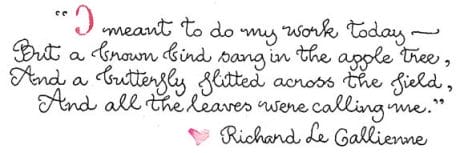 “I meant to do my work today—
But a brown bird sang in the apple tree,
And a butterfly flitted across the field,
And all the leaves were calling me.”
Richard Le Gallienne